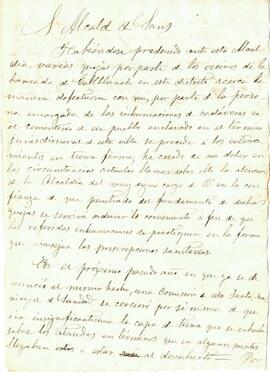 S. Alcalde de Sans
Habiéndose producido ante esta Alcal
dia varias quejas por parte de los vecinos de la
barriada de Collblanch en este distrito acerca la
manera defectuosa con que, por parte de la perso
na encargada de las inhumaciones de cadáveres en
el cementerio de ese pueblo enclavado en el término
jurisdiccional de esta villa se procede á los enterra
mientos en tierra firme, he creido de mi deber en
las circunstancias actuales llamar sobre ella la atencion
de la Alcaldia del muy digno cargo de V. en la con
fianza de que penetrado del fundamento de dichas
quejas se servirá ordenar lo conveniente á fin de que
las referidas inhumaciones se practiquen en la forma
que aconsejan las prescripciones sanitarias.
En el próximo pasado año en que ya se de
nunció el mismo hecho, una Comision de esta Junta mu
nicipal de Sanidad se cercioró por si misma de que
era insignificantisima la capa de tierra que se echaba
sobre los ataudes en terminos que en algunos puntos
llegaban estos á estar al descubierto = Por